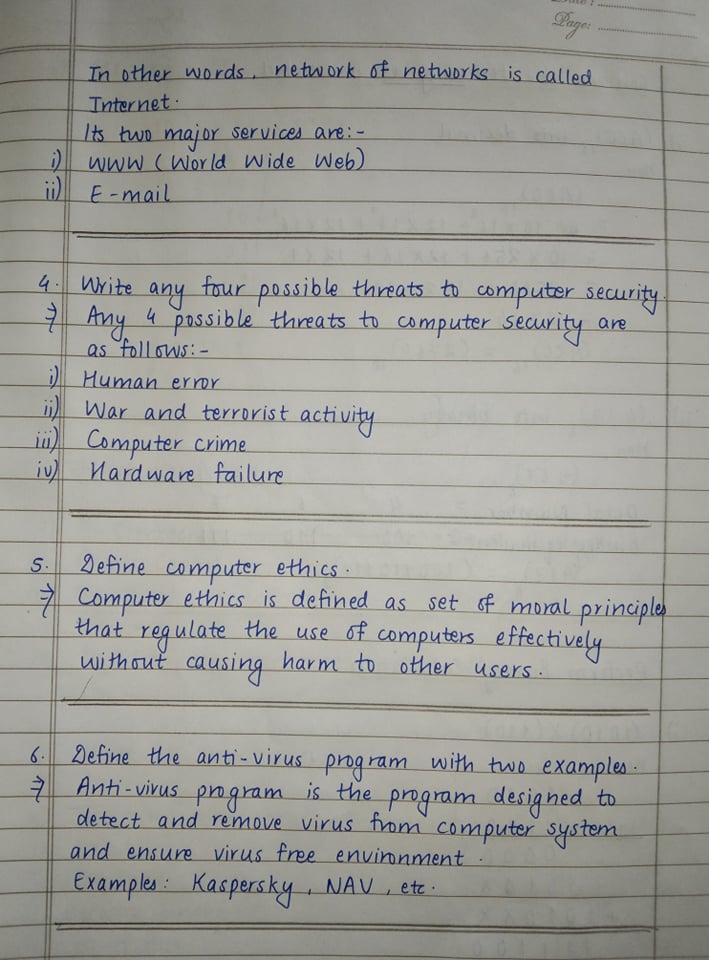 Page:
In other words, network of networks is called
Internet.
Its two major services are:-
i) WWW (World Wide Web)
ii) E-mail
4. Write any four possible threats to computer security.
⇒ Any 4 possible threats to computer security are
as follows:-
i) Human error
ii) War and terrorist activity
iii) Computer crime
iv) Hardware failure
5. Define computer ethics.
⇒ Computer ethics is defined as set of moral principles
that regulate the use of computers effectively
without causing harm to other users.
6. Define the anti-virus program with two examples.
⇒ Anti-virus program is the program designed to
detect and remove virus from computer system
and ensure virus free environment.
Examples: Kaspersky, NAV, etc.